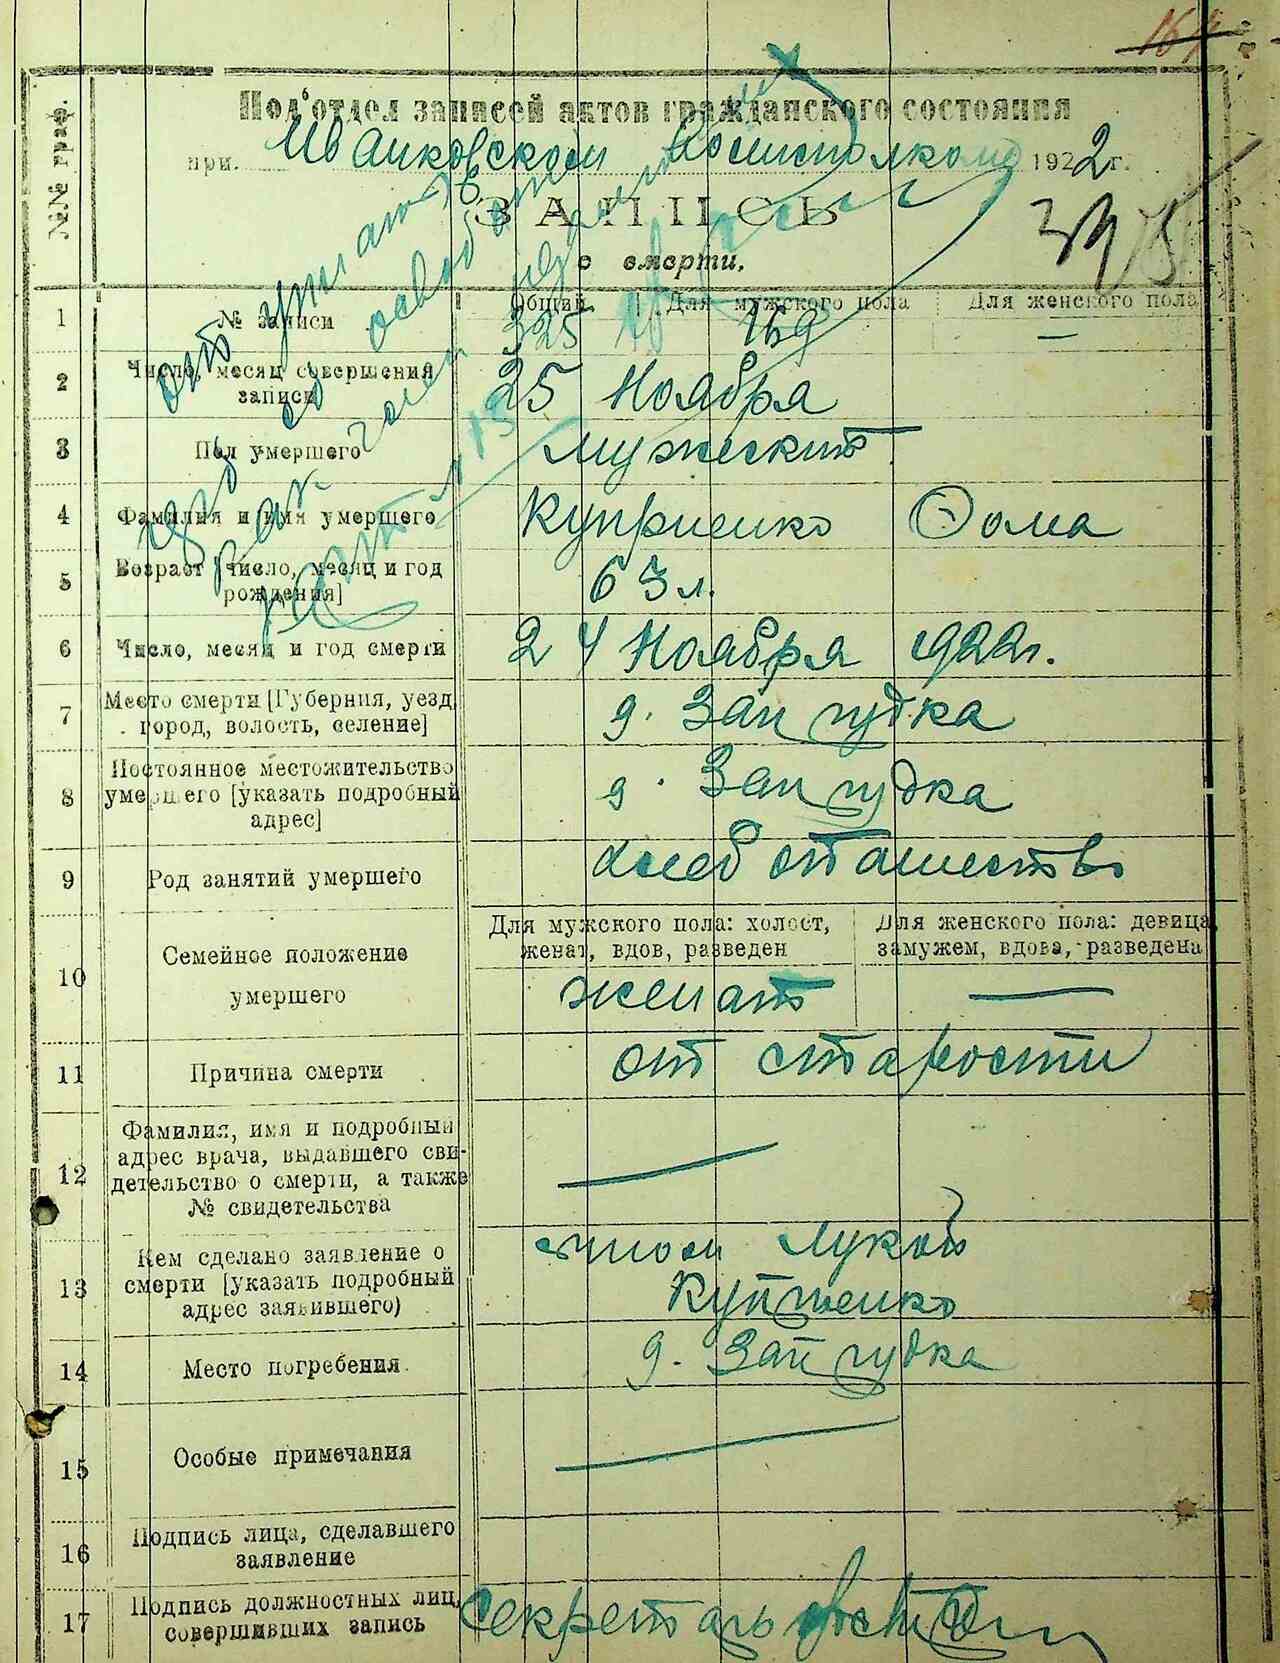 Под'отдел записей актов гражданского состояния
при Иванковском Волисполкоме 1922 г.
ЗАПИСЬ
о смерти.
№№ граф.
Общий Для мужского пола Для женского пола
1 № записи 325 169 —
2 Число, месяц совершения записи 25 Ноября
3 Пол умершего мужескит
4 Фамилия и имя умершего Куприенко Фома
5 Возраст [число, месяц и год рождения] 63 л.
6 Число, месяц и год смерти 24 Ноября 1922 г.
7 Место смерти [Губерния, уезд, город, волость, селение] д. Запрудка
8 Постоянное местожительство умершего [указать подробный адрес] д. Запрудка
9 Род занятий умершего хлебопашество
10 Семейное положение умершего
Для мужского пола: холост, женат, вдов, разведен
Для женского пола: девица, замужем, вдова, разведена
женат —
11 Причина смерти от старости
12 Фамилия, имя и подробный адрес врача, выдавшего свидетельство о смерти, а также № свидетельства —
13 Кем сделано заявление о смерти [указать подробный адрес заявившего) сыном Лукой Куприенко
14 Место погребения д. Запрудка
15 Особые примечания —
16 Подпись лица, сделавшего заявление
17 Подпись должностных лиц, совершивших запись Секретарь